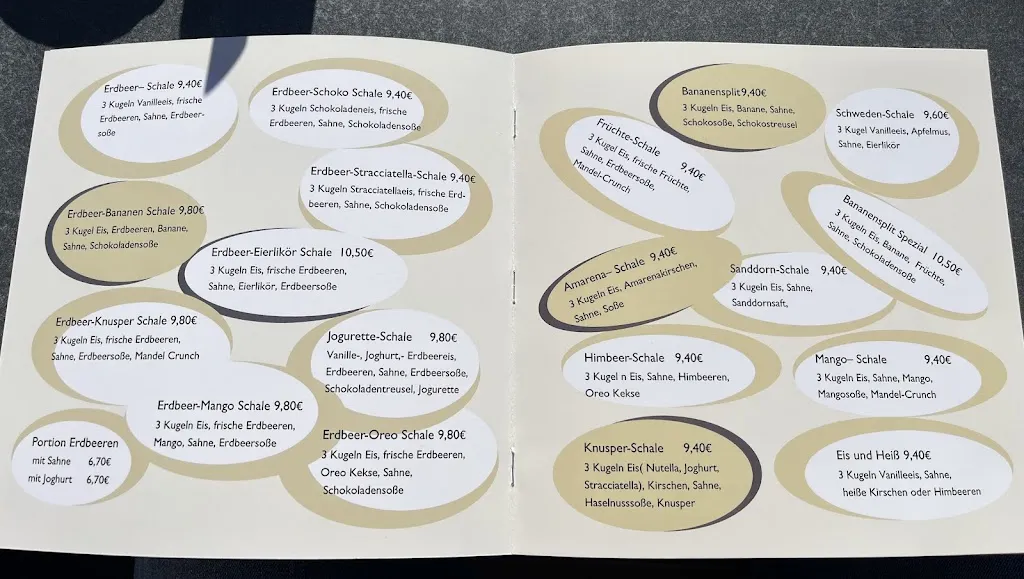 Erdbeer– Schale 9,40€
3 Kugeln Vanilleeis, frische
Erdbeeren, Sahne, Erdbeer-
soße
Erdbeer-Schoko Schale 9,40€
3 Kugeln Schokoladeneis, frische
Erdbeeren, Sahne, Schokoladensoße
Erdbeer-Stracciatella-Schale 9,40€
3 Kugeln Stracciatellaeis, frische Erd-
beeren, Sahne, Schokoladensoße
Erdbeer-Bananen Schale 9,80€
3 Kugel Eis, Erdbeeren, Banane,
Sahne, Schokoladensoße
Erdbeer-Eierlikör Schale 10,50€
3 Kugeln Eis, frische Erdbeeren,
Sahne, Eierlikör, Erdbeersoße
Erdbeer-Knusper Schale 9,80€
3 Kugeln Eis, frische Erdbeeren,
Sahne, Erdbeersoße, Mandel Crunch
Jogurette-Schale 9,80€
Vanille-, Joghurt,- Erdbeereis,
Erdbeeren, Sahne, Erdbeersoße,
Schokoladentreusel, Jogurette
Erdbeer-Mango Schale 9,80€
3 Kugeln Eis, frische Erdbeeren,
Mango, Sahne, Erdbeersoße
Erdbeer-Oreo Schale 9,80€
3 Kugeln Eis, frische Erdbeeren,
Oreo Kekse, Sahne,
Schokoladensoße
Portion Erdbeeren
mit Sahne 6,70€
mit Joghurt 6,70€
Bananensplit9,40€
3 Kugeln Eis, Banane, Sahne,
Schokosoße, Schokostreusel
Schweden-Schale 9,60€
3 Kugel Vanilleeis, Apfelmus,
Sahne, Eierlikör
Früchte-Schale 9,40€
3 Kugel Eis, frische Früchte,
Sahne, Erdbeersoße,
Mandel-Crunch
Bananensplit Spezial 10,50€
3 Kugeln Eis, Banane, Früchte,
Sahne, Schokoladensoße
Amarena– Schale 9,40€
3 Kugeln Eis, Amarenakirschen,
Sahne, Soße
Sanddorn-Schale 9,40€
3 Kugeln Eis, Sahne,
Sanddornsaft,
Himbeer-Schale 9,40€
3 Kugel n Eis, Sahne, Himbeeren,
Oreo Kekse
Mango– Schale 9,40€
3 Kugeln Eis, Sahne, Mango,
Mangosoße, Mandel-Crunch
Knusper-Schale 9,40€
3 Kugeln Eis( Nutella, Joghurt,
Stracciatella), Kirschen, Sahne,
Haselnusssoße, Knusper
Eis und Heiß 9,40€
3 Kugeln Vanilleeis, Sahne,
heiße Kirschen oder Himbeeren